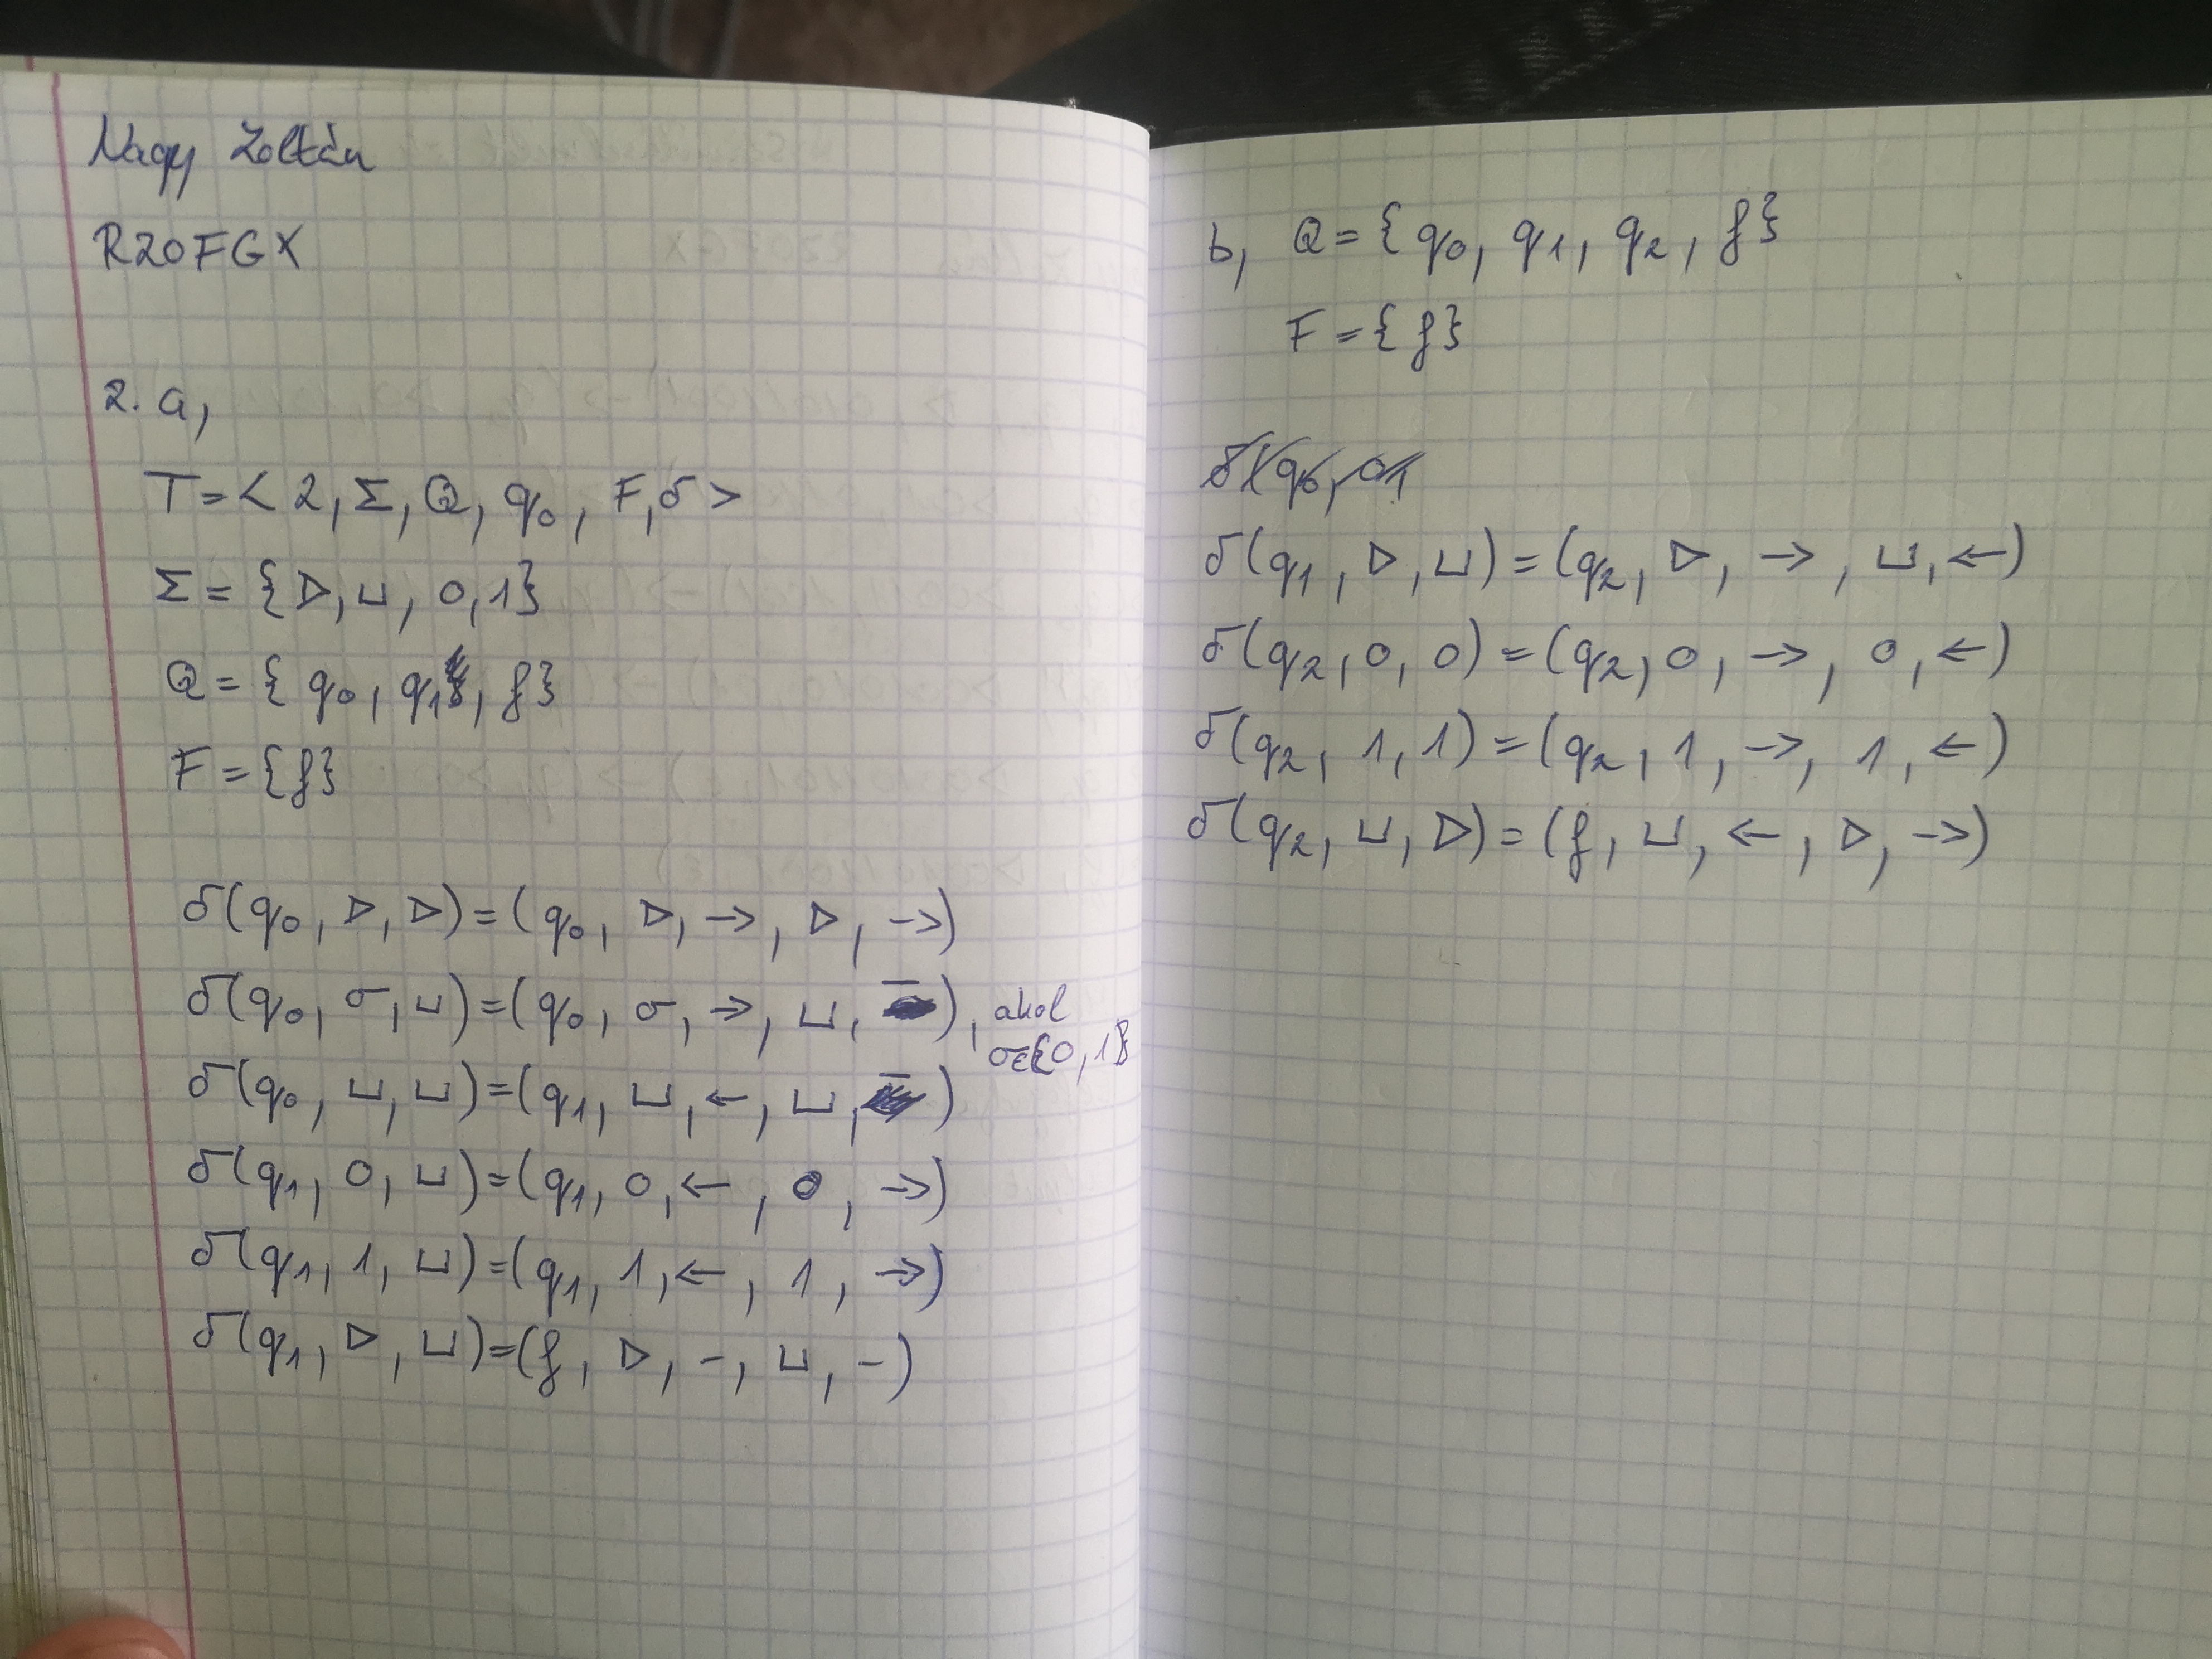 Nagy Zoltán
R20FGX
2. a,
T = < 2, Σ, Q, q₀, F, δ >
Σ = {▷, ⊔, 0, 1}
Q = { q₀, q₁, f}
F = {f}
δ(q₀, ▷, ▷) = (q₀, ▷, →, ▷, →)
δ(q₀, σ, ⊔) = (q₀, σ, →, ⊔, –), ahol
σ∈{0, 1}
δ(q₀, ⊔, ⊔) = (q₁, ⊔, ←, ⊔, –)
δ(q₁, 0, ⊔) = (q₁, 0, ←, 0, →)
δ(q₁, 1, ⊔) = (q₁, 1, ←, 1, →)
δ(q₁, ▷, ⊔) = (f, ▷, –, ⊔, –)
b, Q = { q₀, q₁, q₂, f}
F = { f}
δ(q₀, 01
δ(q₁, ▷, ⊔) = (q₂, ▷, →, ⊔, ←)
δ(q₂, 0, 0) = (q₂, 0, →, 0, ←)
δ(q₂, 1, 1) = (q₂, 1, →, 1, ←)
δ(q₂, ⊔, ▷) = (f, ⊔, ←, ▷, →)